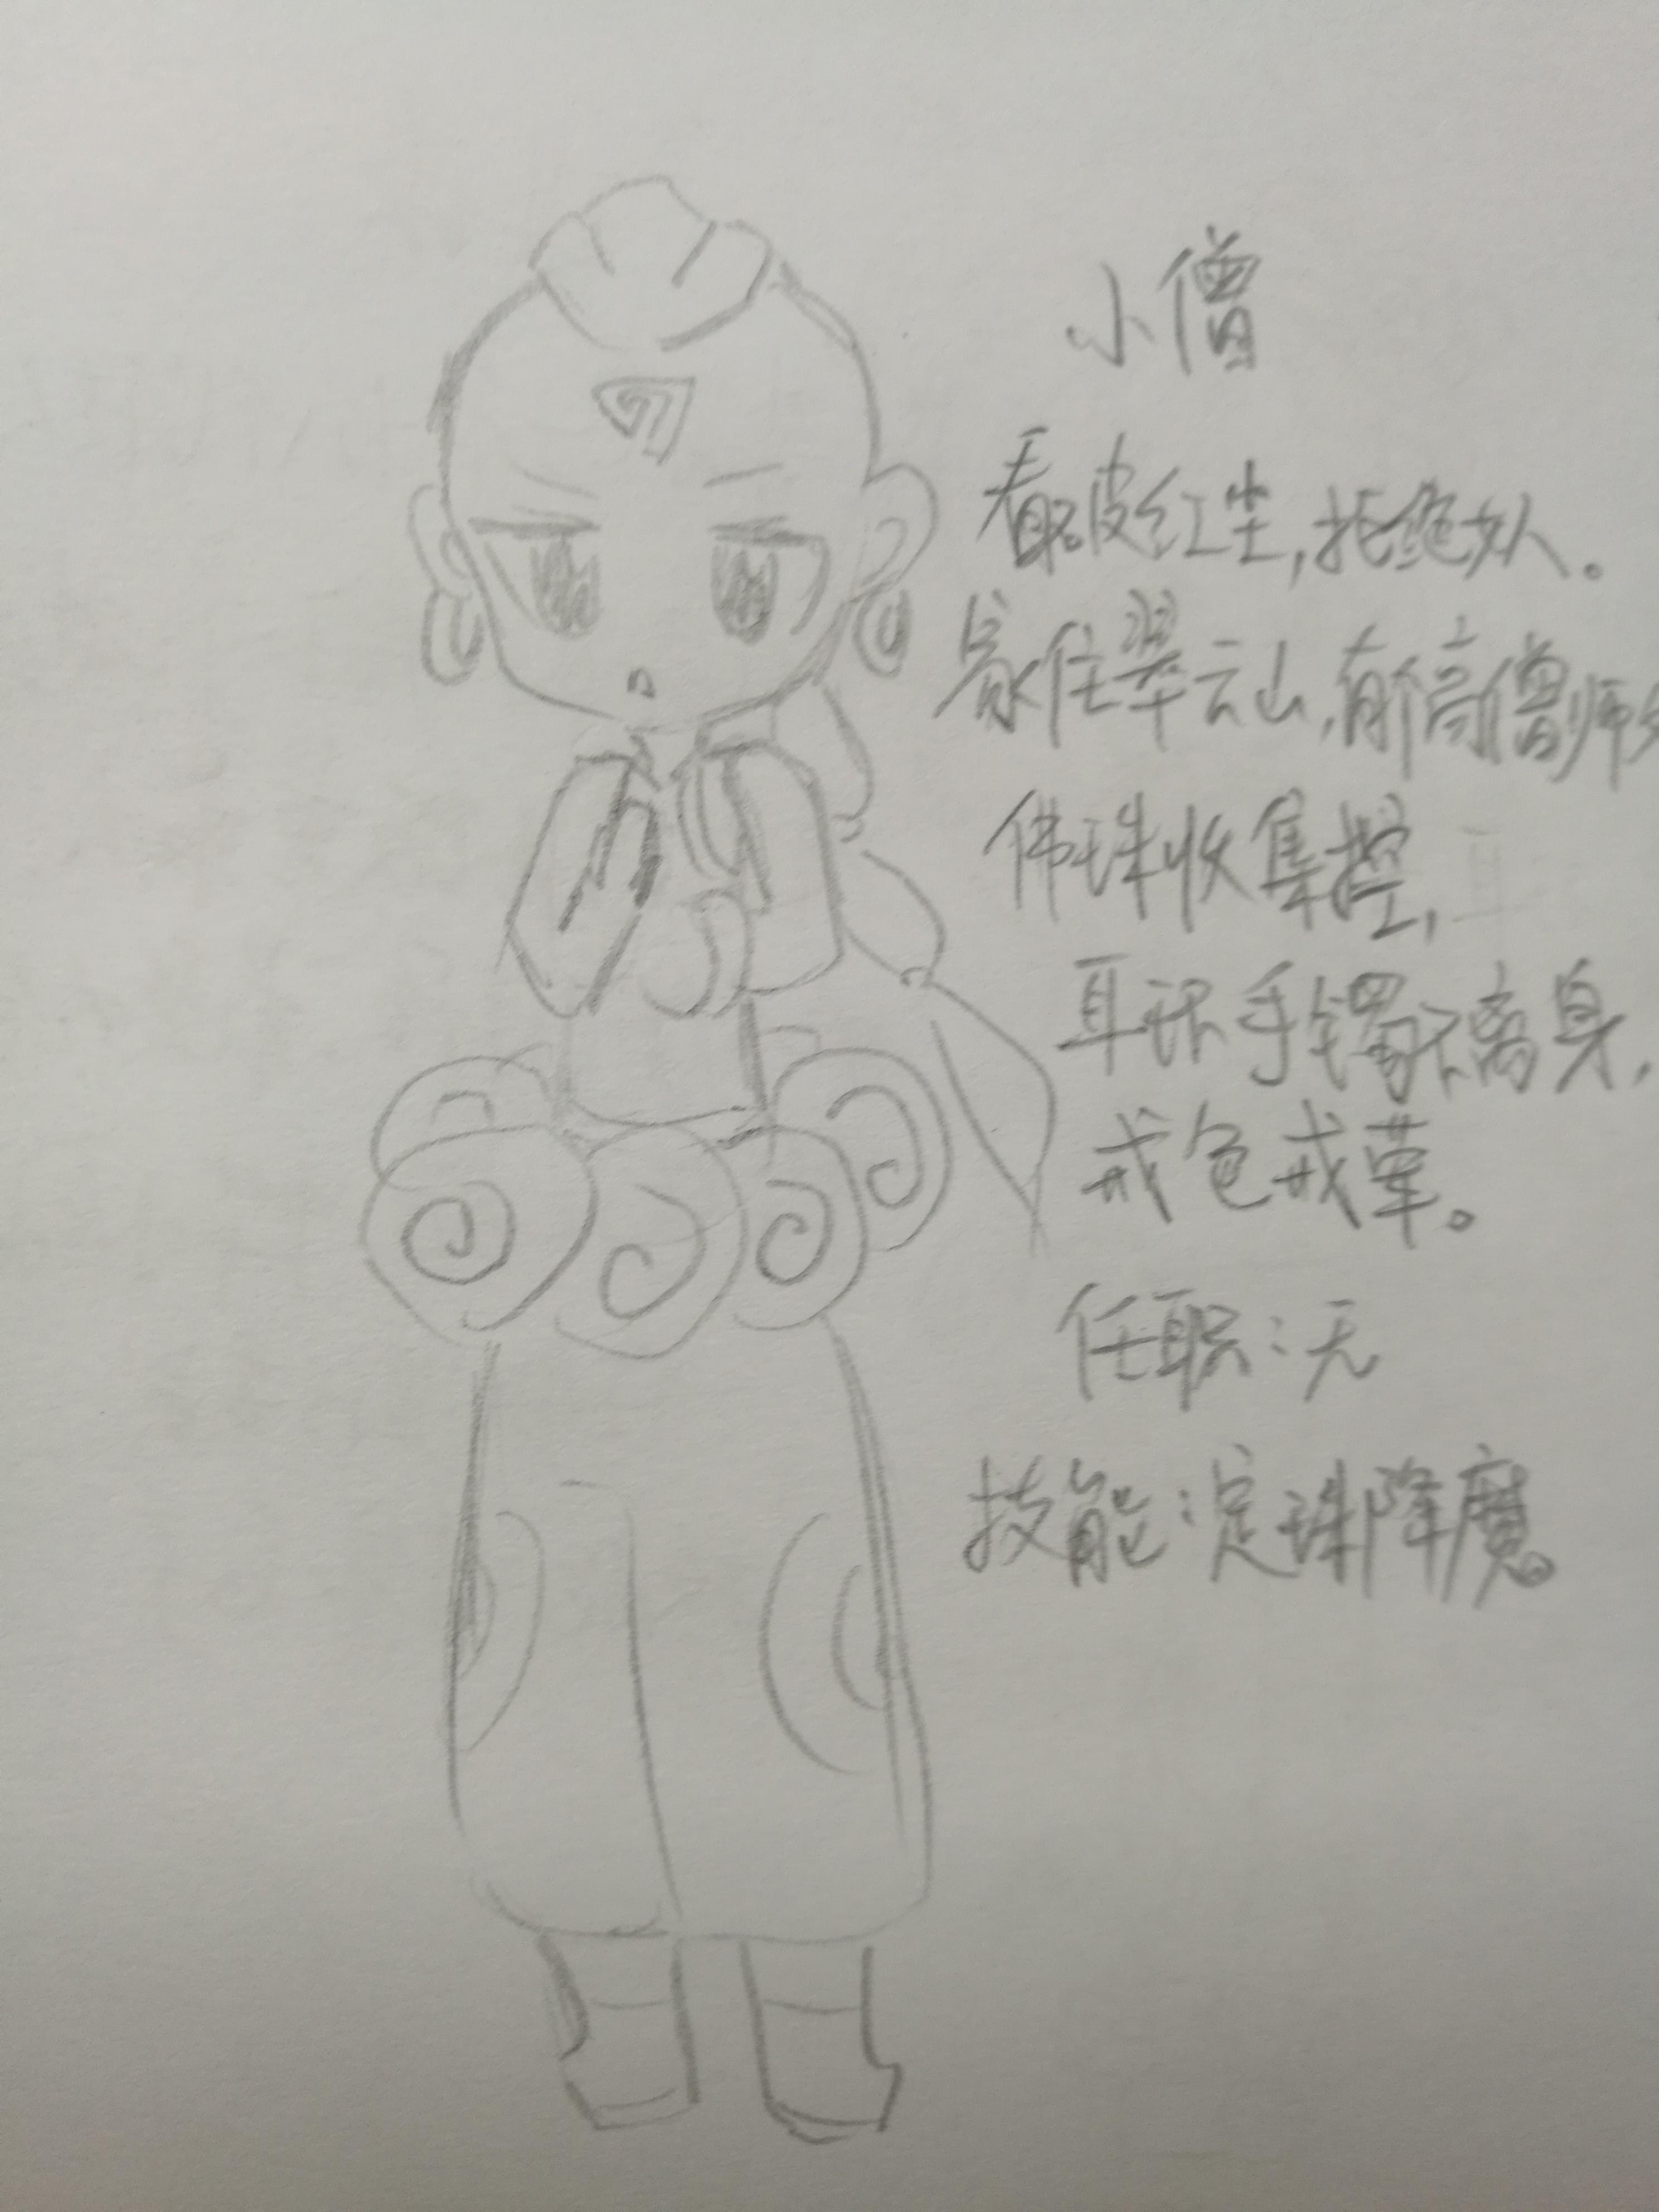 小僧
看破红尘,拒绝女人。
家住翠云山,有个高僧师父
佛珠收集控,
耳环手镯不离身,
戒色戒荤。
任职:无
技能:定珠降魔。